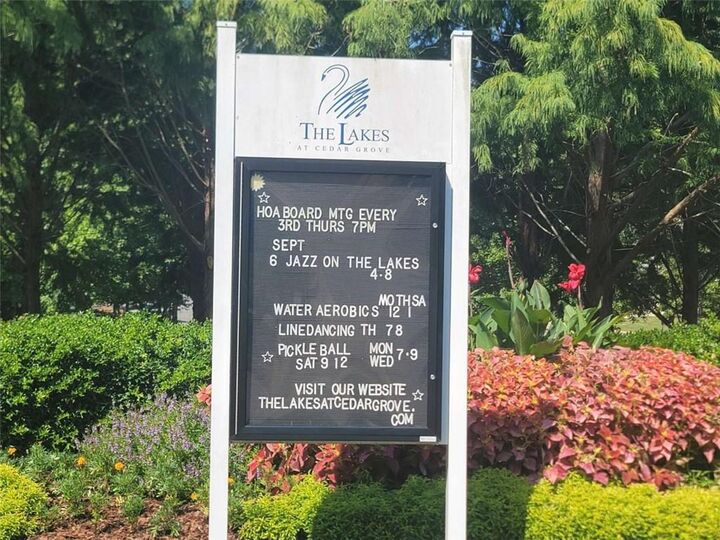 THE LAKES
AT CEDAR GROVE
HOA BOARD MTG EVERY
3RD THURS 7PM
SEPT
6 JAZZ ON THE LAKES
4-8
MOTHSA
WATER AEROBICS 12 1
LINEDANCING TH 78
PICKLE BALL MON 7-9
SAT 9 12 WED
VISIT OUR WEBSITE
THELAKESATCEDARGROVE.
COM